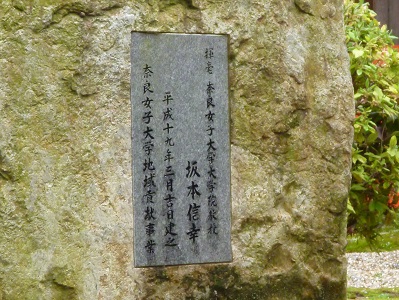 揮毫 奈良女子大学大学院教授
坂本信幸
平成十九年三月吉日建之
奈良女子大学地域貢献事業